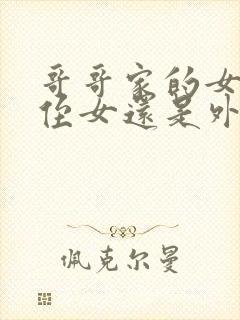 哥哥家的女
侄女還是外
佩克尔曼